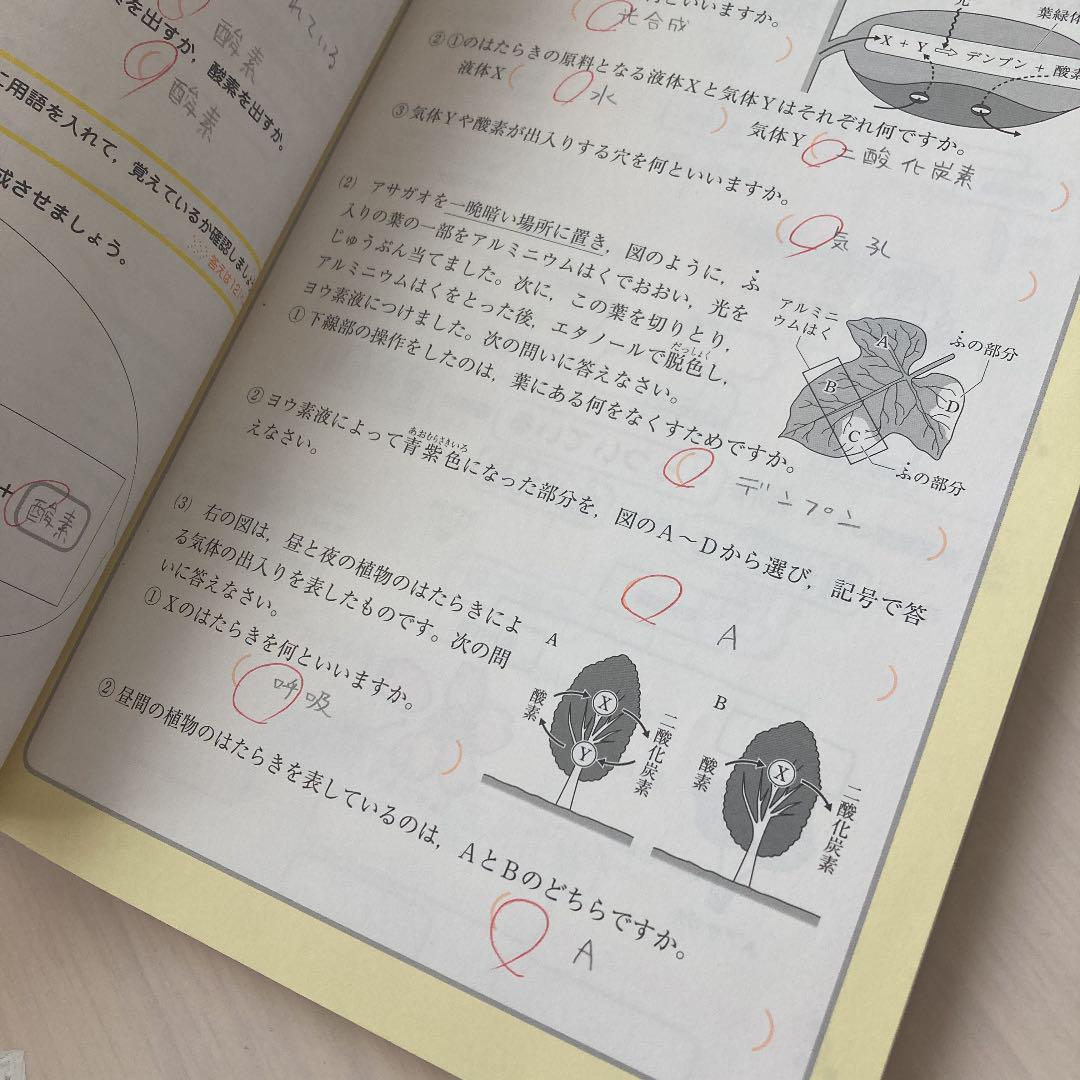 れている
を出すか, 酸素を出すか。
酸素
酸素
に用語を入れて, 覚えているか確認しましょ
答えは12
成させましょう。
+ 酸素
といいますか。
光合成
②①のはたらきの原料となる液体Xと気体Yはそれぞれ何ですか。
液体X 水
気体Y 二酸化炭素
③気体Yや酸素が出入りする穴を何といいますか。
気孔
光
葉緑体
X + Y ⇨ デンプン + 酸素
(2) アサガオを一晩暗い場所に置き, 図のように, ふ
入りの葉の一部をアルミニウムはくでおおい, 光を
じゅうぶん当てました。次に, この葉を切りとり,
アルミニウムはくをとった後, エタノールで脱色し,
だっしょく
ヨウ素液につけました。次の問いに答えなさい。
①下線部の操作をしたのは, 葉にある何をなくすためですか。
デンプン
②ヨウ素液によって青紫色になった部分を, 図のA〜Dから選び, 記号で答
あおむらさきいろ
えなさい。
A
アルミニ
ウムはく
ふの部分
A
B
C
D
ふの部分
(3) 右の図は, 昼と夜の植物のはたらきによ
る気体の出入りを表したものです。次の問
いに答えなさい。
①Xのはたらきを何といいますか。
呼吸
②昼間の植物のはたらきを表しているのは, AとBのどちらですか。
A
A
酸素
X
Y
二酸化炭素
B
酸素
X
二酸化炭素